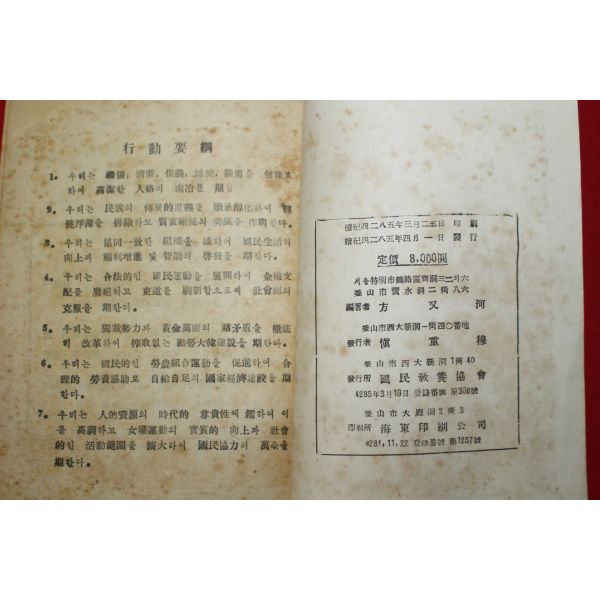 行動要綱
1。 우리는 禮儀, 清廉, 信義, 博愛, 義勇을 信條로
하여 高潔한 人格의 陶冶를 期한다。
2。 우리는 民族의 傳統的道義를 繼承醇化하여 輕
佻浮薄을 排除하고 質實剛健의 美風을 作興한다。
3。 우리는 協同一致한 組織을 通하여 國民生活의
向上과 福利增進 및 智識의 啓發을 期한다。
4。 우리는 合法的인 國民運動을 展開하여 金權支
配를 廢絕하고 吏道를 刷新함으로써 社會惡의
克服을 期한다。
5。 우리는 獨裁勢力과 黃金萬能의 諸矛盾을 徹底
히 改革하여 搾取없는 勤勞大韓建設을 期한다。
6。 우리는 國民的인 勞農組合運動을 促進하여 合
理的 勞資協助로 自給自足의 國家經濟建設을 期
한다。
7。 우리는 人的資源의 時代的 尊貴性에 鑑하여 이
를 高調하고 女權運動의 實質的 向上과 社會
的인 活動範圍를 擴大하여 國民協力의 萬全을
期한다。
檀紀四二八五年三月二五日 印刷
檀紀四二八五年四月一日 發行
定價 8,000圓
서울特別市鍾路區齊洞三二의六
釜山市寶水洞二街八六
編著者 方又河
釜山市西大新洞一街四〇番地
發行者 愼重穆
釜山市西大新洞1街40
發行所 國民敎養協會
4285年3月19日 登錄番號 第306號
釜山市大廳洞2街3
印刷所 海東印刷公司
4281,11,22 登錄番號 第1257號